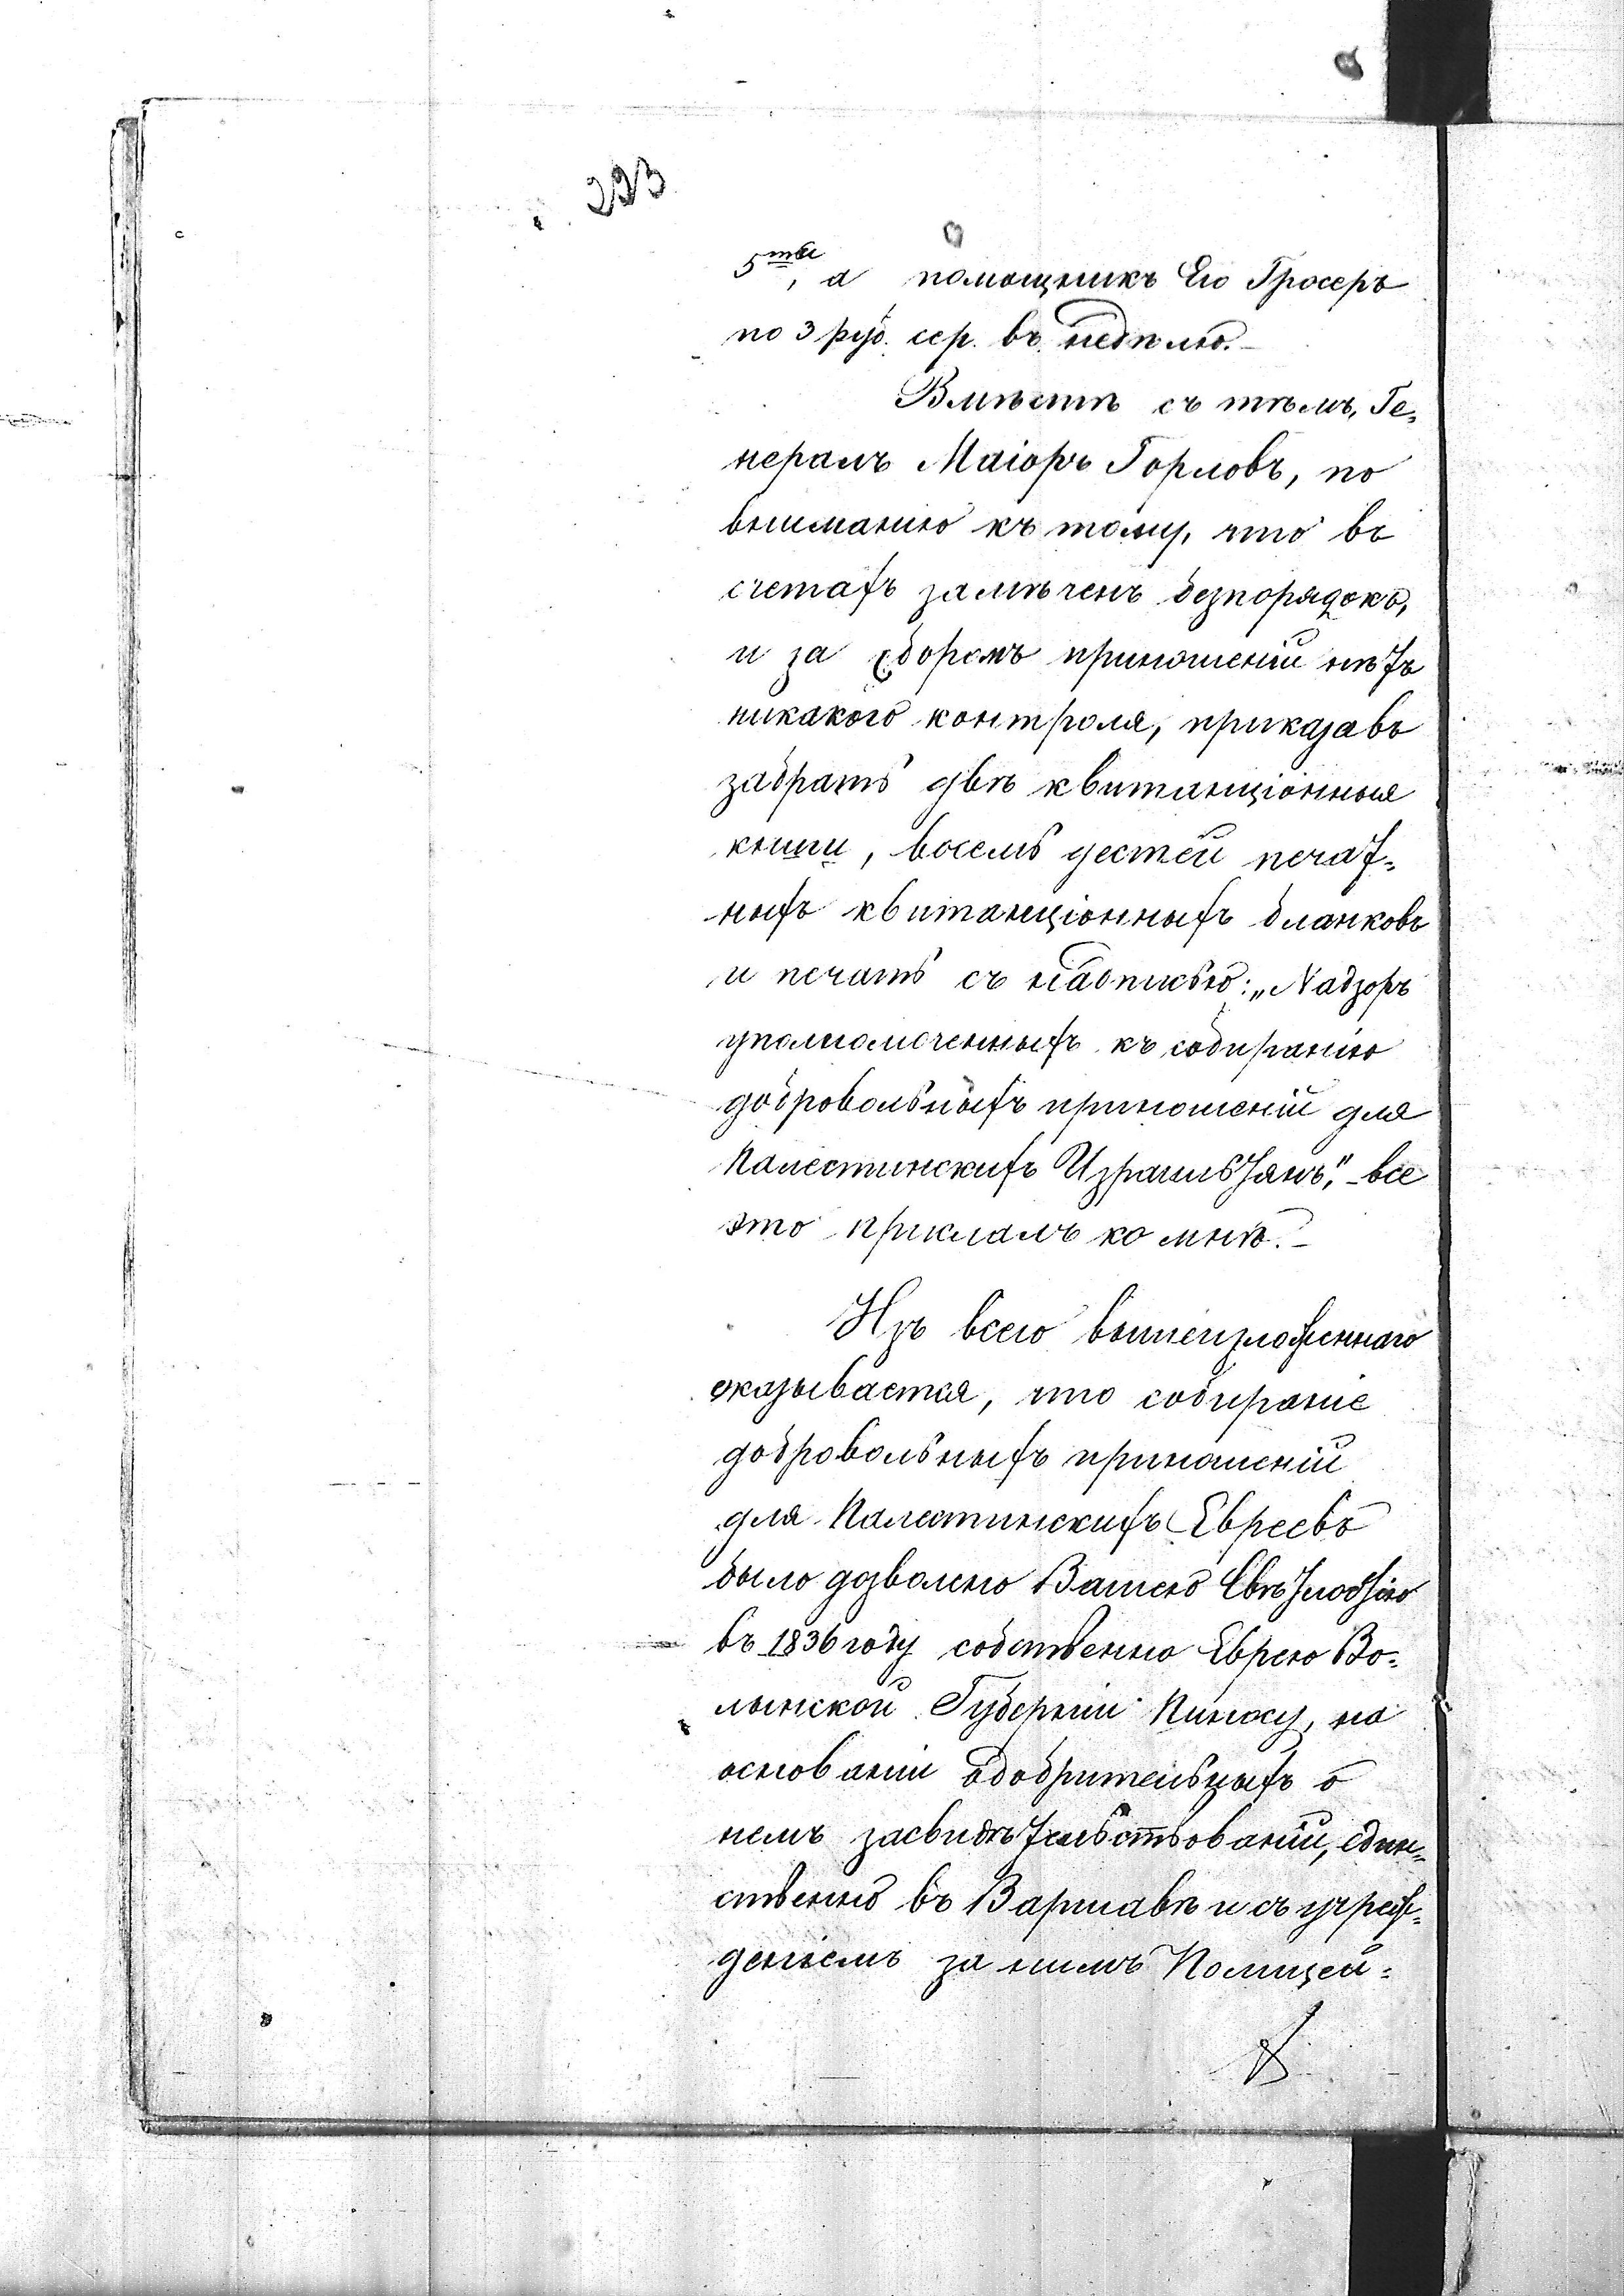 223
5ти, а помощникъ Его Гросеръ
по 3 руб. сер. въ недѣлю.
Вмѣстѣ съ тѣмъ, Ге=
нералъ Маіоръ Горловъ, по
вниманію къ тому, что въ
счетахъ замѣченъ безпорядокъ,
и за сборомъ приношеній нѣтъ
никакого контроля, приказавъ
забрать двѣ квитанціонныя
книги, восемь дестей печат=
ныхъ квитанціонныхъ бланковъ
и печать съ надписью: „Надзоръ
уполномоченныхъ къ собиранію
добровольныхъ приношеній для
Палестинскихъ Израильтянъ", - все
это прислалъ ко мнѣ. -
Изъ всего вышеизложеннаго
оказывается, что собираніе
добровольныхъ приношеній
для Палестинскихъ Евреевъ
было дозволено Вашею Свѣтлостію
въ 1836 году собственно Еврею Во=
лынской Губерніи Пинхасу, на
основаніи одобрительныхъ о
немъ засвидѣтельствованій, един=
ственно въ Варшавѣ и съ учреж=
деніемъ за нимъ Полицей=